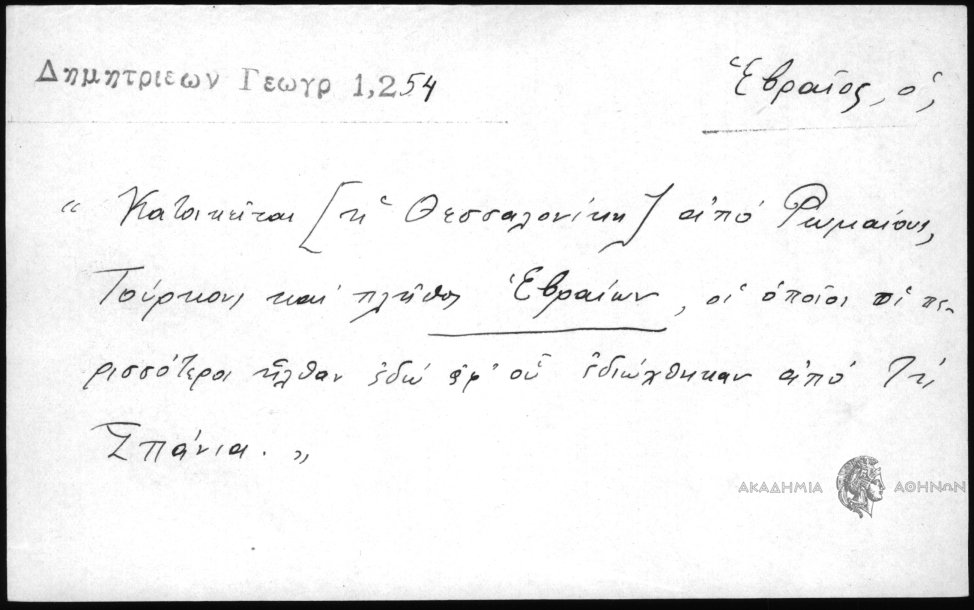 Δημητριεων Γεωγρ 1,254
Ἑβραῖος, ὁ,
“ Κατοικεῖται [ἡ Θεσσαλονίκη] ἀπό Ρωμαίους,
Τούρκους καί πλῆθος Ἑβραίων, οἱ ὁποῖοι οἱ πε-
ρισσότεροι ἦλθαν ἐδώ ἀφ' οὗ ἐδιώχθηκαν ἀπό τή
Σπάνια. „
ΑΚΑΔΗΜΙΑ ΑΘΗΝΩΝ